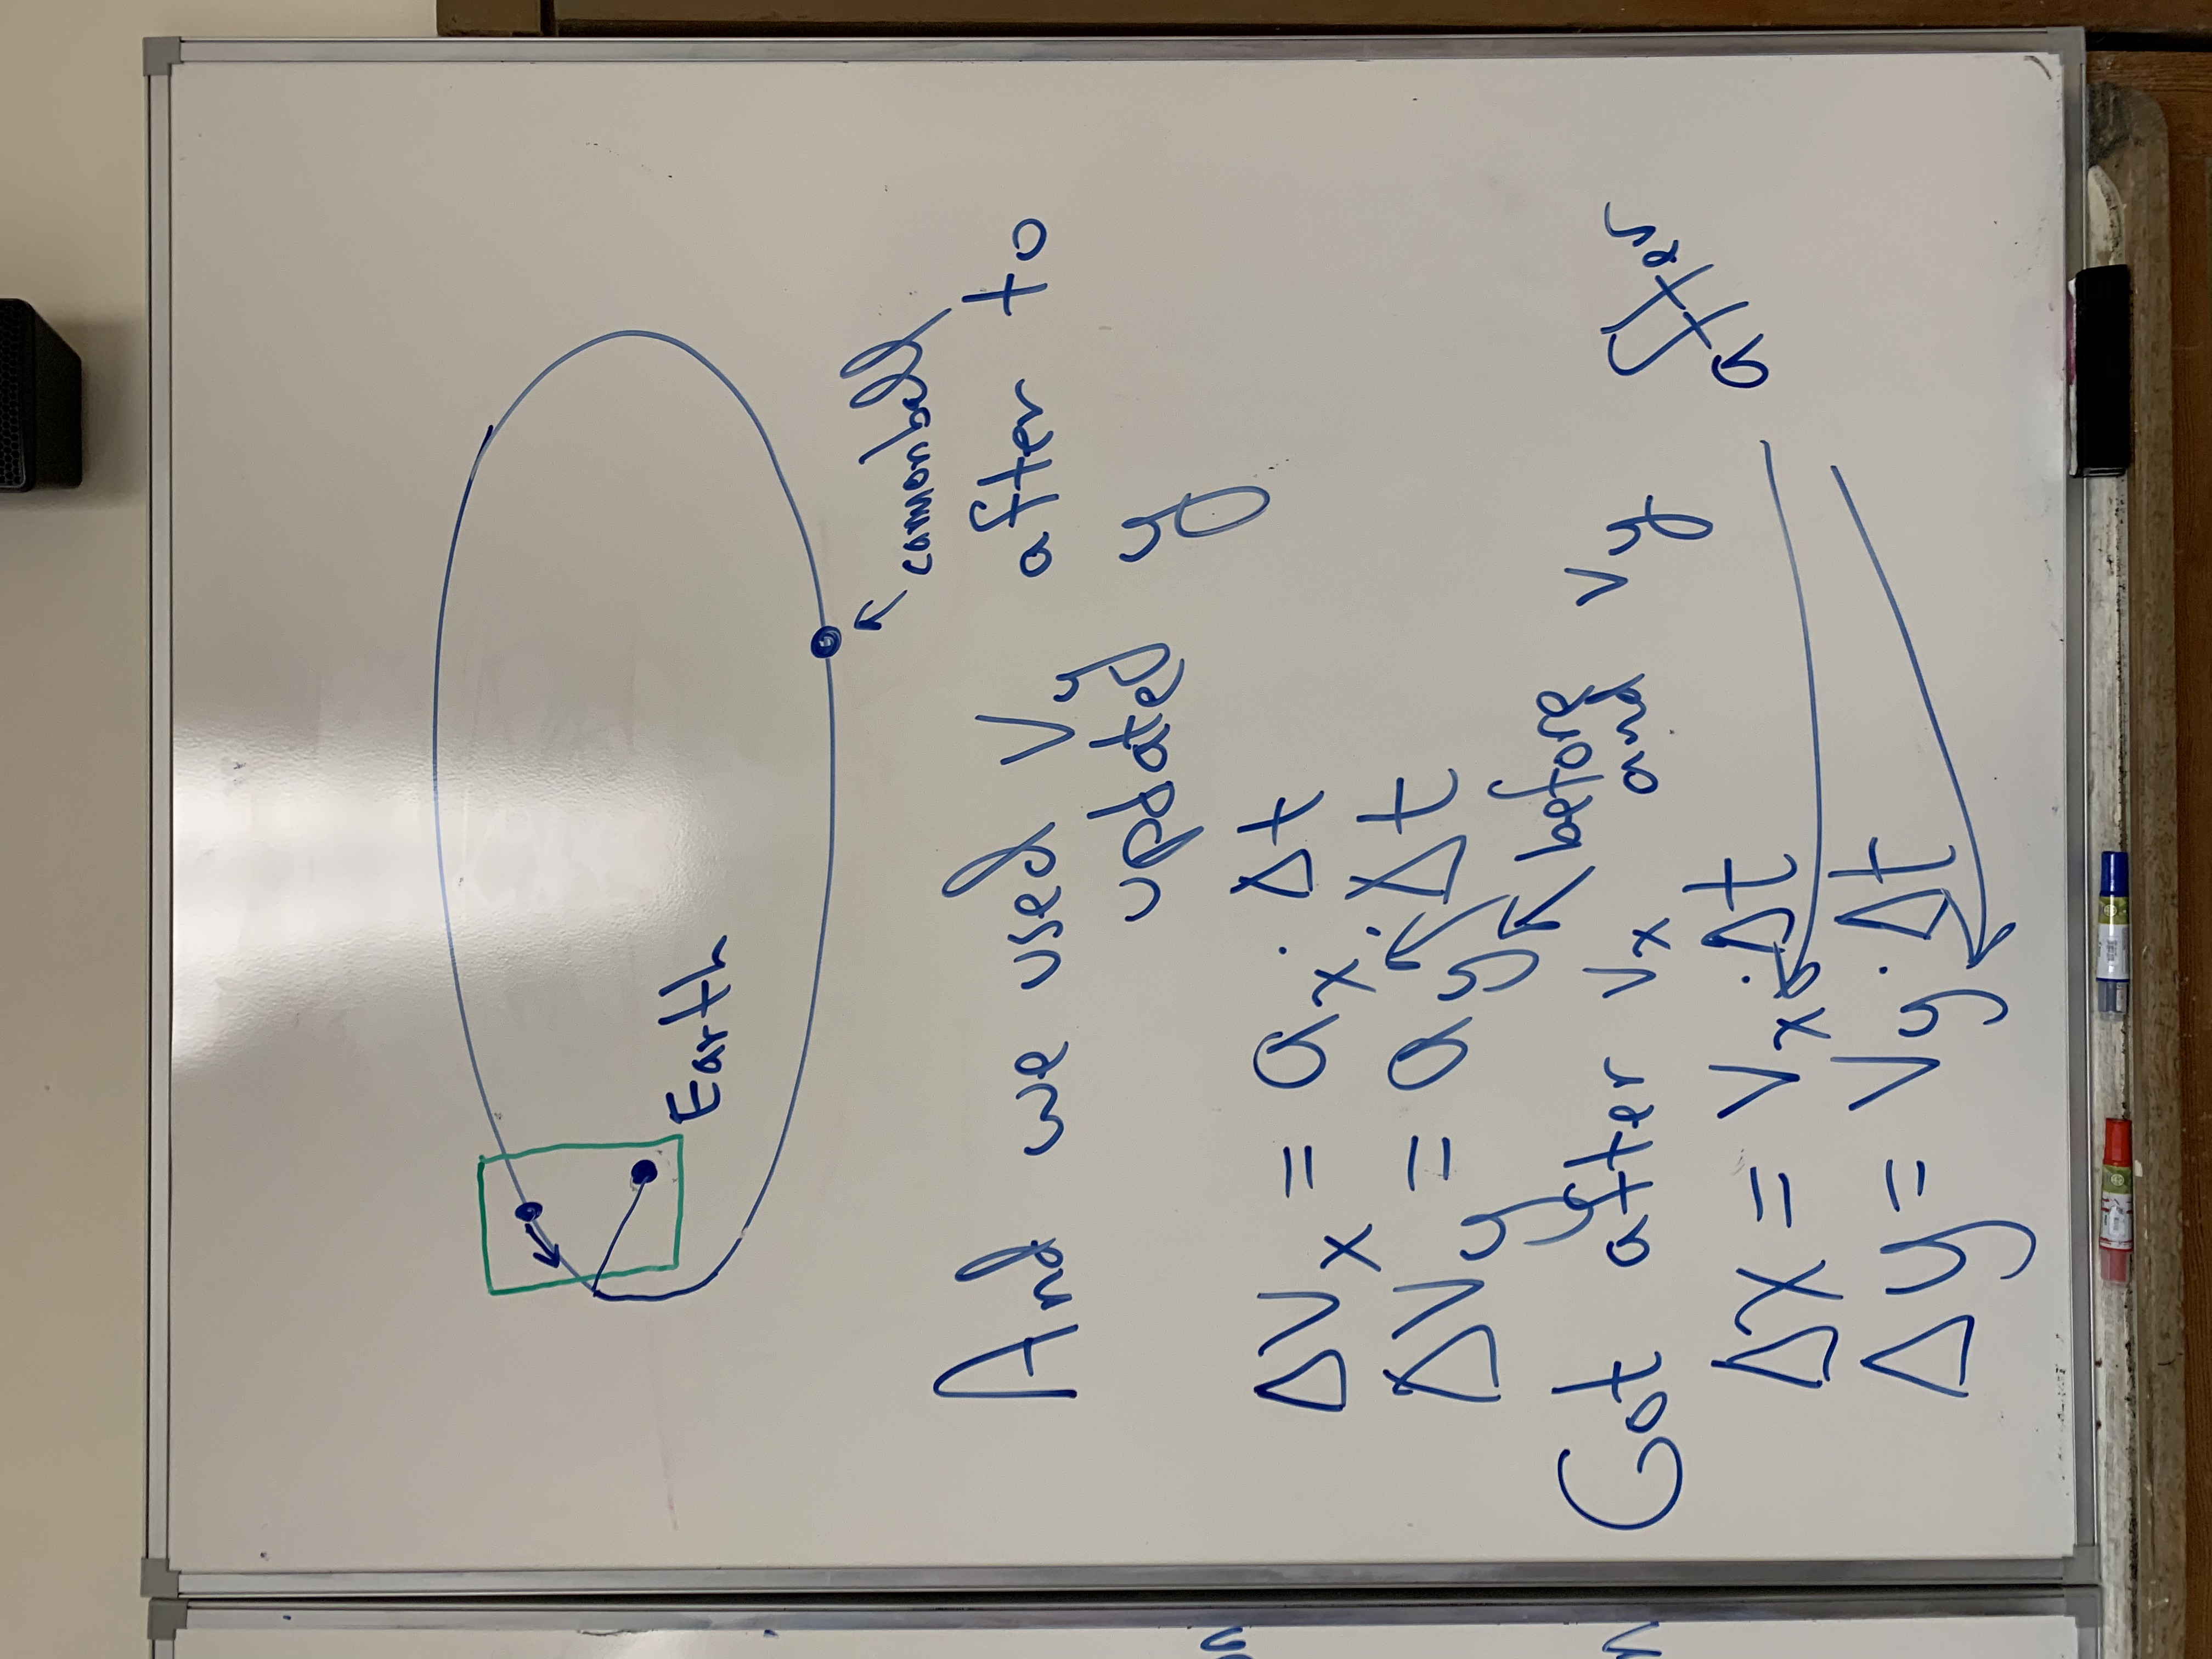 Earth
cannonball
And we used Vy after to
updated y
ΔVx = ax · Δt
ΔVy = ay · Δt
before
Got after Vx and Vy
after
Δx = Vx · Δt
Δy = Vy · Δt
n
n